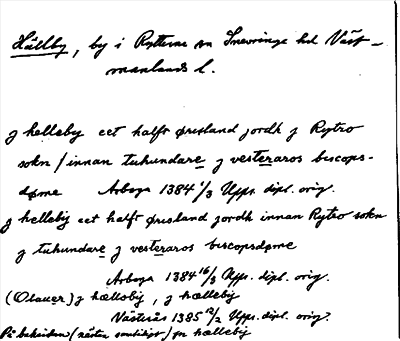 Hällby, by i Rytterne sn Snevringe hd Väst-
manlands l.
j helleby eet halft øresland jordh j Rytro
sokn / innan tuhundare j vesteraros biscops-
døme Arboga 1384 1/3 Upps. dipl. orig.
j helleby eet halft øresland jordh innan Rytro sokn
j tuhundare j vesteraros biscopsdøme
Arboga 1384 16/3 Upps. dipl. orig.
(Olauer) j hælloby, j hælleby
Västerås 1385 12/2 Upps. dipl. orig.
På baksidan (nästan samtidigt) hælleby